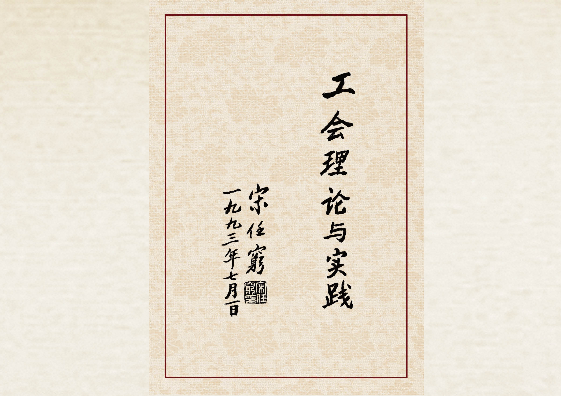 工会理论与实践
宋任穷
一九九三年七月一日